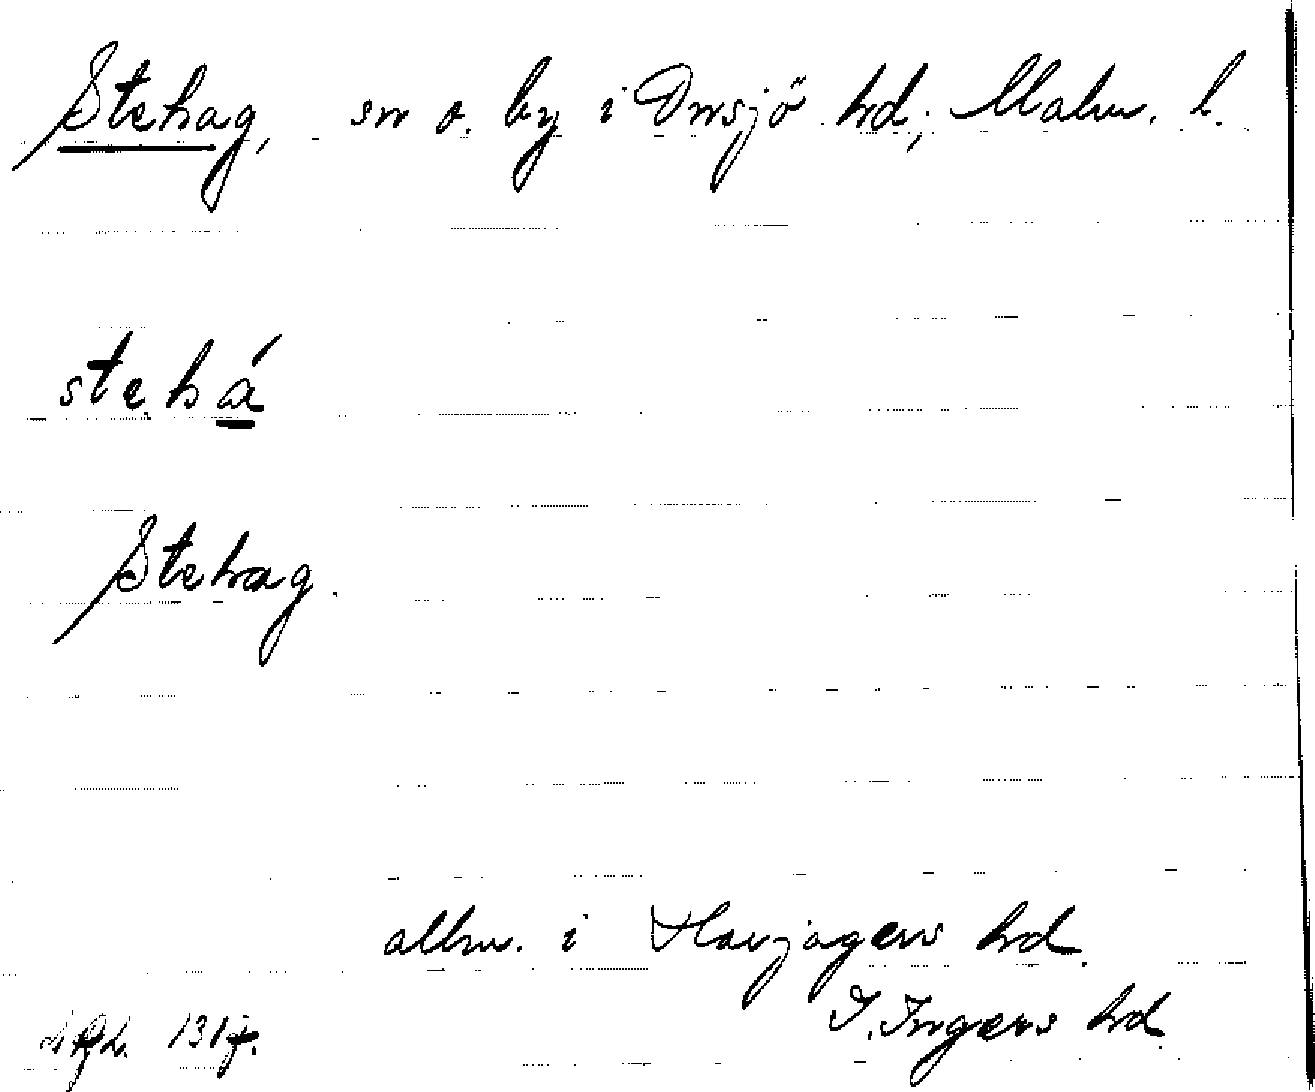 Stehag, sn o. by i Onsjö hd; Malm. l.
stehá
Stehag.
allm. i Harjagers hd.
I. Ingers hd.
131